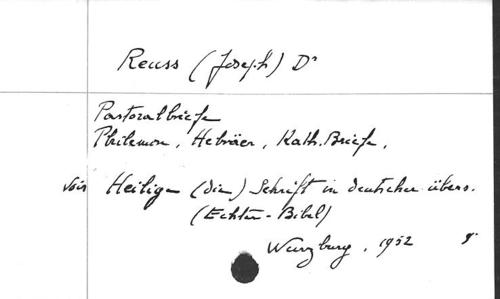 Reuss (Joseph) Dr
Pastoralbriefe
Philemon, Hebräer, Kath. Briefe.
voir Heilige (die) Schrift in deutscher übers.
(Echter-Bibel)
Wurzburg, 1952